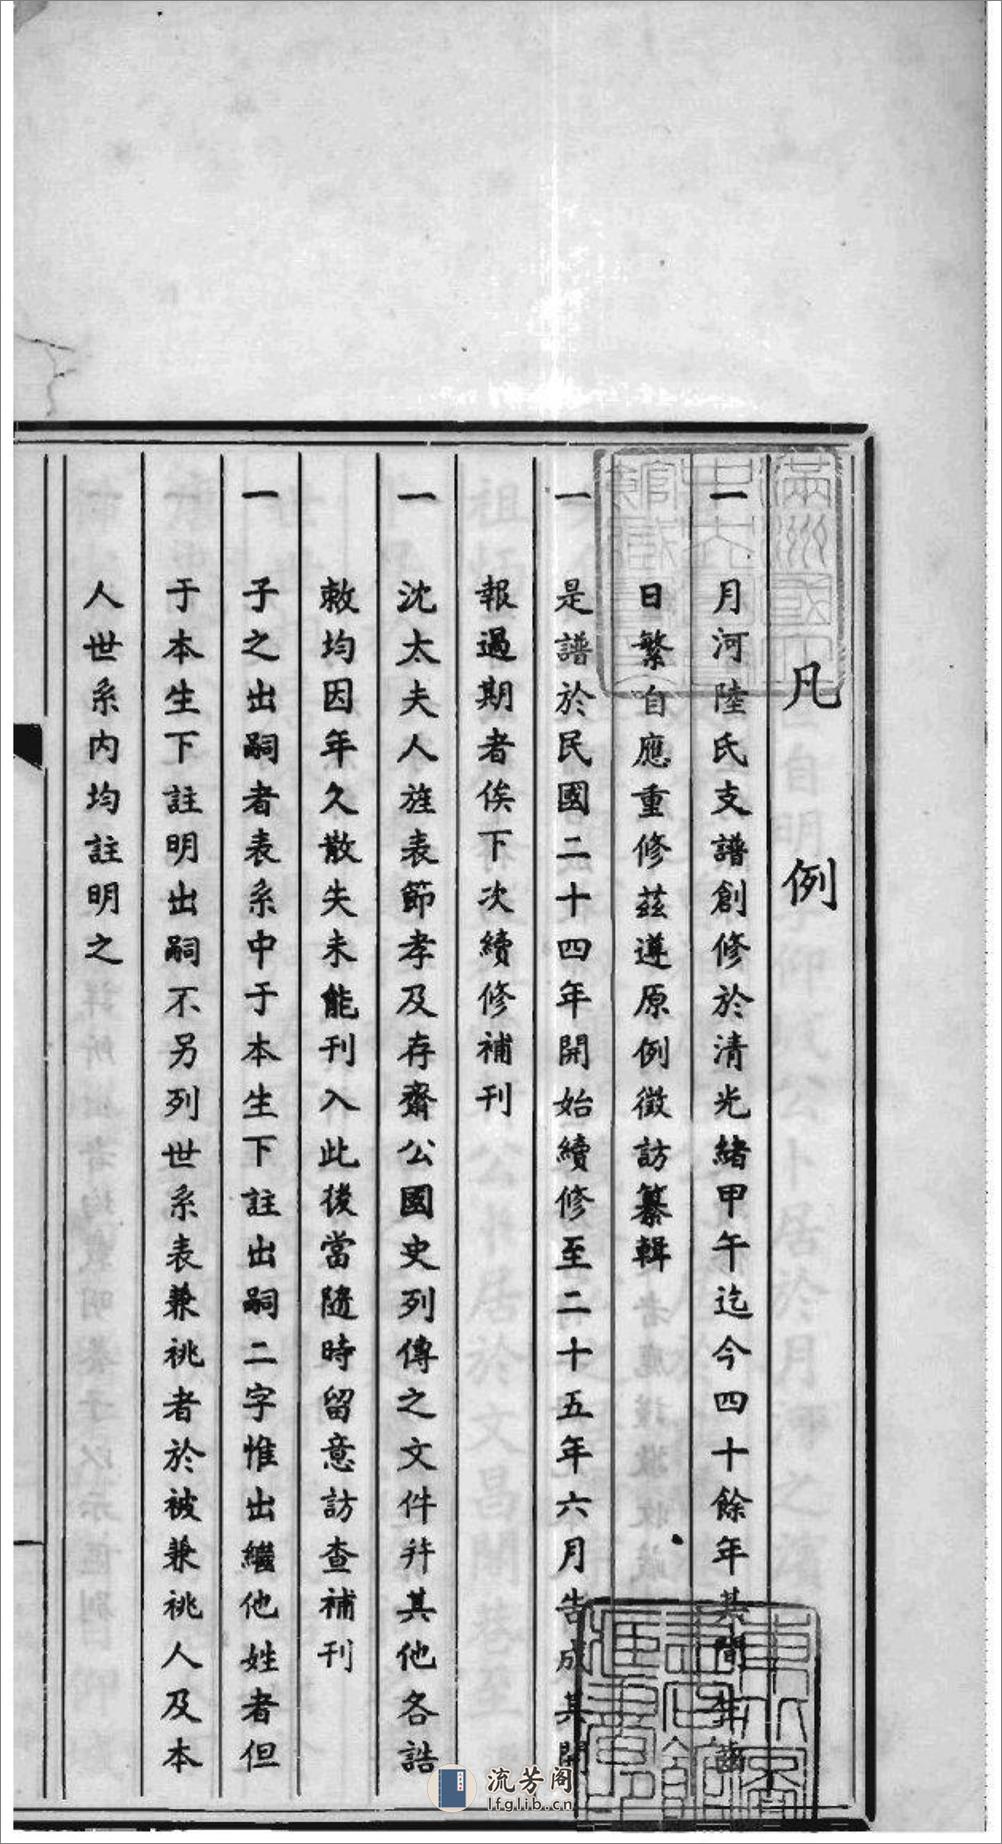 凡例
一月河陸氏支譜創修於清光緒甲午迄今四十餘年其間生齒
日繁自應重修茲遵原例徵訪纂輯
一是譜於民國二十四年開始續修至二十五年六月告成其開
報過期者俟下次續修補刊
一沈太夫人旌表節孝及存齋公國史列傳之文件幷其他各誥
敕均因年久散失未能刊入此後當隨時留意訪查補刊
一子之出嗣者表系中于本生下註出嗣二字惟出繼他姓者但
于本生下註明出嗣不另列世系表兼祧者於被兼祧人及本
人世系內均註明之
一
流芳阁
lfglib.cn